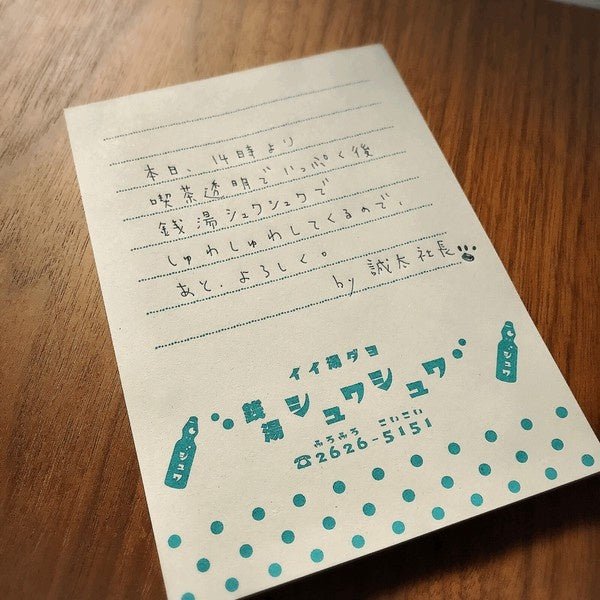 本日、14時より
喫茶透明でいっぷく後
銭湯シュワシュワで
しゅわしゅわしてくるので、
あと、よろしく。
by 誠太社長
イイ湯ダヨ
銭湯シュワシュワ
ふろふろ こいこい
☎2626-5151
シュワ
シュワ